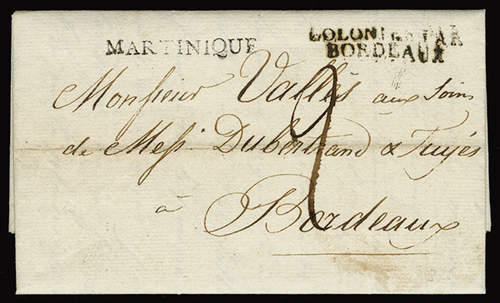 MARTINIQUE
COLONIES PAR
BORDEAUX
Monsieur Vallès aux soins
de Mess. Dubertrand &
à Bordeaux